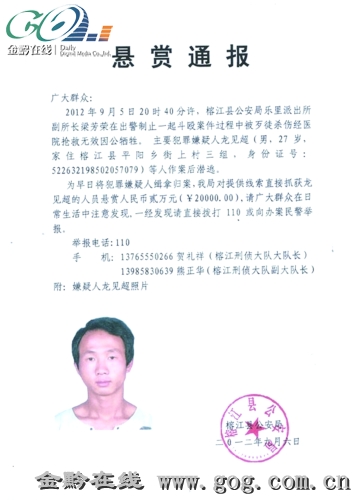 金黔在线
Daily
Digital Media
悬 赏 通 报
广大群众：
2012 年 9 月 5 日 20 时 40 分许，榕江县公安局乐里派出所
副所长梁芳荣在出警制止一起斗殴案件过程中被歹徒杀伤经医
院抢救无效因公牺牲。主要犯罪嫌疑人龙见超（男，27 岁，
家住榕江县平阳乡街上村三组，身份证号：
522632198502057079）等人作案后潜逃。
为早日将犯罪嫌疑人缉拿归案，我局对提供线索直接抓获龙
见超的人员悬赏人民币贰万元（￥20000.00），请广大群众在日
常生活中注意发现，一经发现请直接拨打 110 或向办案民警举
报。
举报电话：110
手 机：13765550266 贺礼祥（榕江刑侦大队大队长）
13985830639 熊正华（榕江刑侦大队副大队长）
附：嫌疑人龙见超照片
榕江县公安局
二〇一二年九月六日
榕江县公安局
金黔在线 www.gog.com.cn